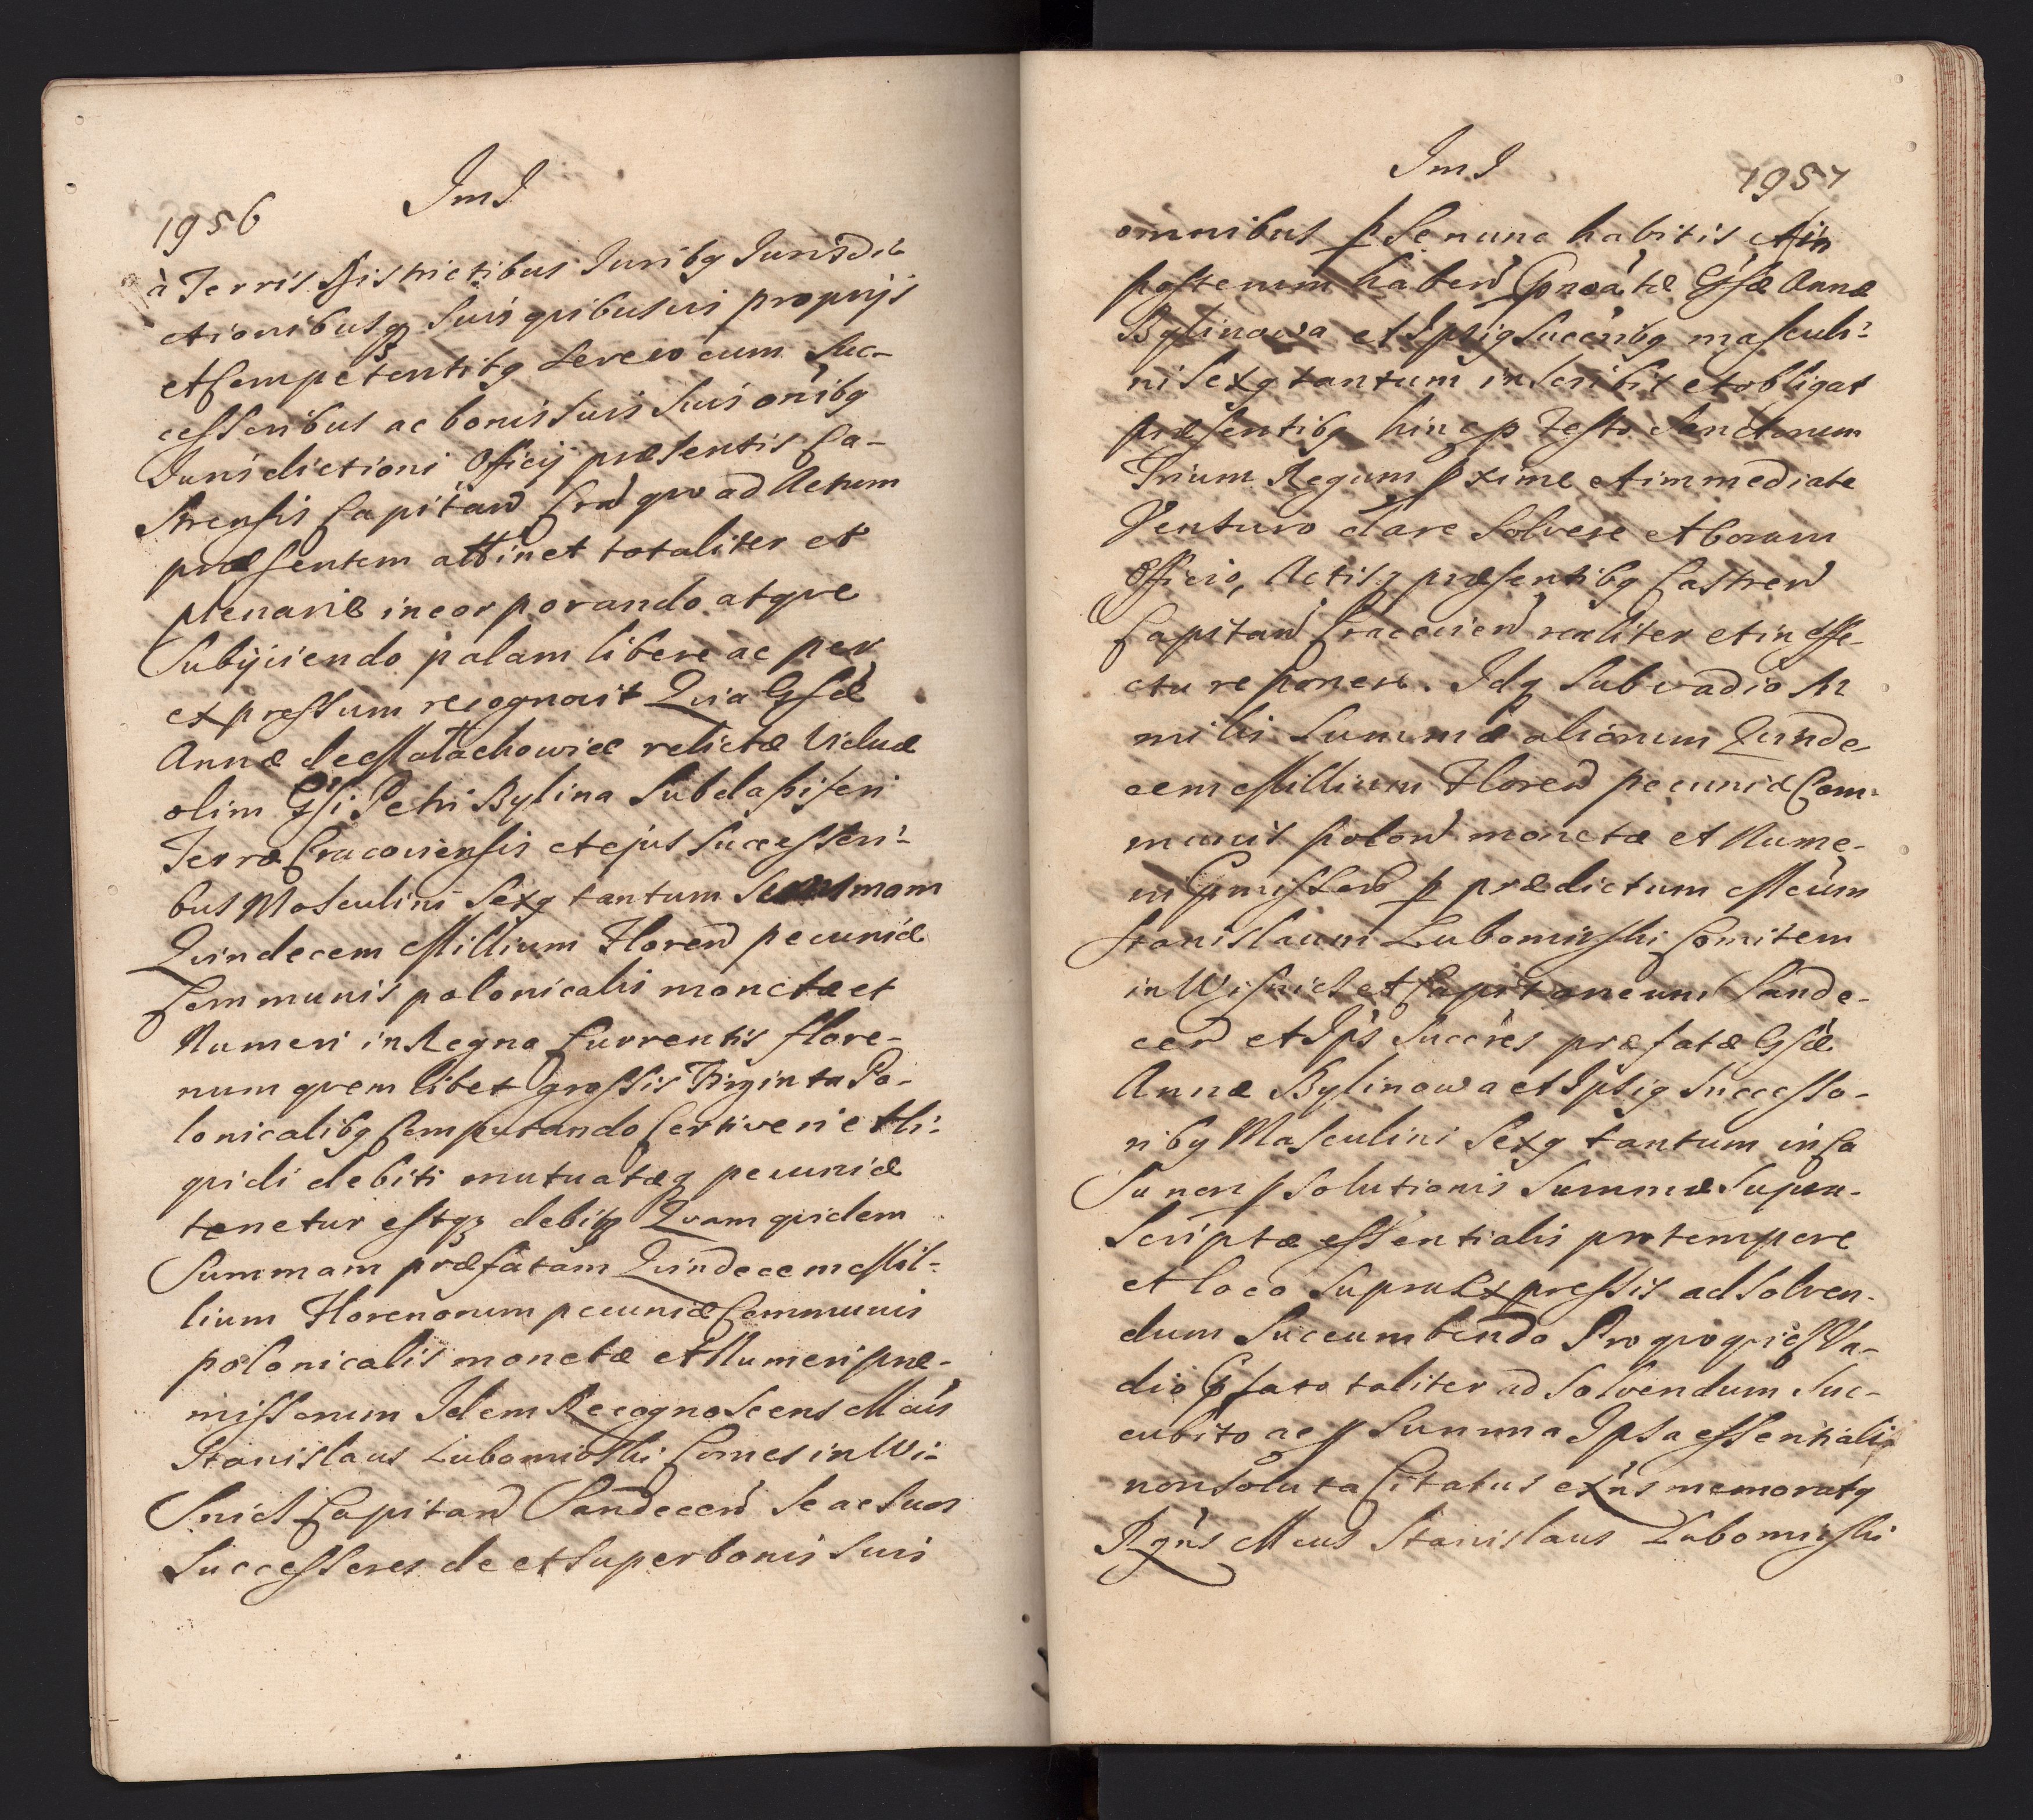 1956
ImJ
à Terris Districtibus Juribq Jurisdi-
ctionibusq Suis quibusvis proprijs
et Competentibq Sereo cum Suc-
cessoribus ac bonis Suis Suis onibq
Jurisdictioni Officij præsentis Ca-
strensis Capitan Cra quo ad Actum
præsentem attinet totaliter et
plenarie incorporando atqve
Subijciendo palam libere ac per
expressum recognovit Qvia Gsæ
Annæ de Małachowice relictæ Viduæ
olim Gsi Petri Bylina Subdapiferi
Terræ Cracoviensis et ejus Successori-
bus Masculini Sexq tantum Summam
Qvindecem Millium Floren pecuniæ
Communis polonicalis monetæ et
Numeri in Regno Currentis flore-
num qvem libet grossis Triginta Po-
lonicalibq Computando Certi veri et li-
quidi debiti mutuatæq pecuniæ
tenetur estq debitq Qvam qvidem
Summam præfatam Qvindecem Mil-
lium Florenorum pecuniæ Communis
polonicalis monetæ et Numeri præ-
missorum Idem Recognoscens Mcus
Stanislaus Lubomirski Comes in Wi-
Snicz Capitan Sandecen Se ac Suos
Successores de et Super bonis Suis
ImJ
1957
omnibus p Se nunc habitis et in
posterum haben Gnrātæ Gsæ Annæ
Bylinowa et Ipsiq Succribq masculi-
ni Sexq tantum inscribit et obligat
præsentibq hinc p Festo Sanctorum
Trium Regum pxime et immediate
Venturo dare Solvere et Coram
Officio, Actisq præsentibq Castren
Capitan Cracovien realiter et in effe-
ctu reponere. Idq Sub vadio Si
mili Summæ aliorum Qvinde-
cem Millium Floren pecuniæ Com-
munis polon monetæ et Nume-
ri pmissor p prædictum Mcum
Stanislaum Lubomirski Comitem
in Wisnicz et Capitaneum Sande-
cen et Ips Succres præfatæ Gsæ
Annæ Bylinowa et Ipsiq Successo-
ribq Masculini Sexq tantum in Ca
Su non p Solutionis Summæ Supra-
Scriptæ essentialis pro tempore
et loco Supra Expressis ad Solven-
dum Succumbendo Pro quo quid Va-
dio psato taliter ad Solvendum Suc-
cubito ac p Summa Ipsa essentialis
non Soluta Citatus exns memoratq
Rgns Mcus Stanislaus Lubomirski